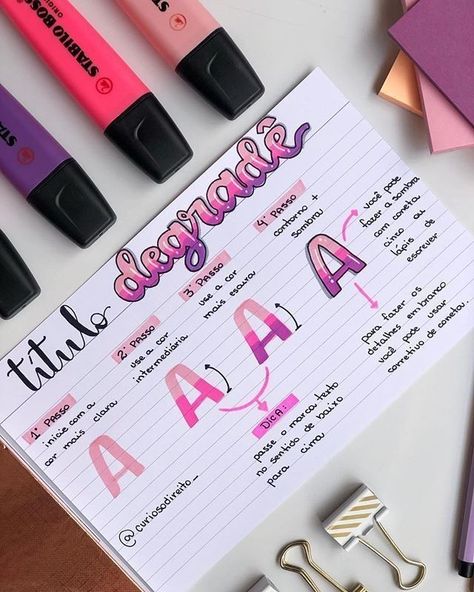 STABILO BOSS
ORIGINAL
STABILO BOSS
STA
título
degradê
1º PASSO
inicie com a
cor mais clara
2º PASSO
use a cor
intermediária
3º PASSO
use a cor
mais escura
4º PASSO
contorno +
sombra!
você pode
fazer a sombra
com caneta
cinza ou
lápis de
escrever
para fazer os
detalhes em branco
você pode usar
corretivo de caneta!
A
A
A
A
DICA:
passe o marca texto
no sentido de baixo
para cima
@curiosodireito_